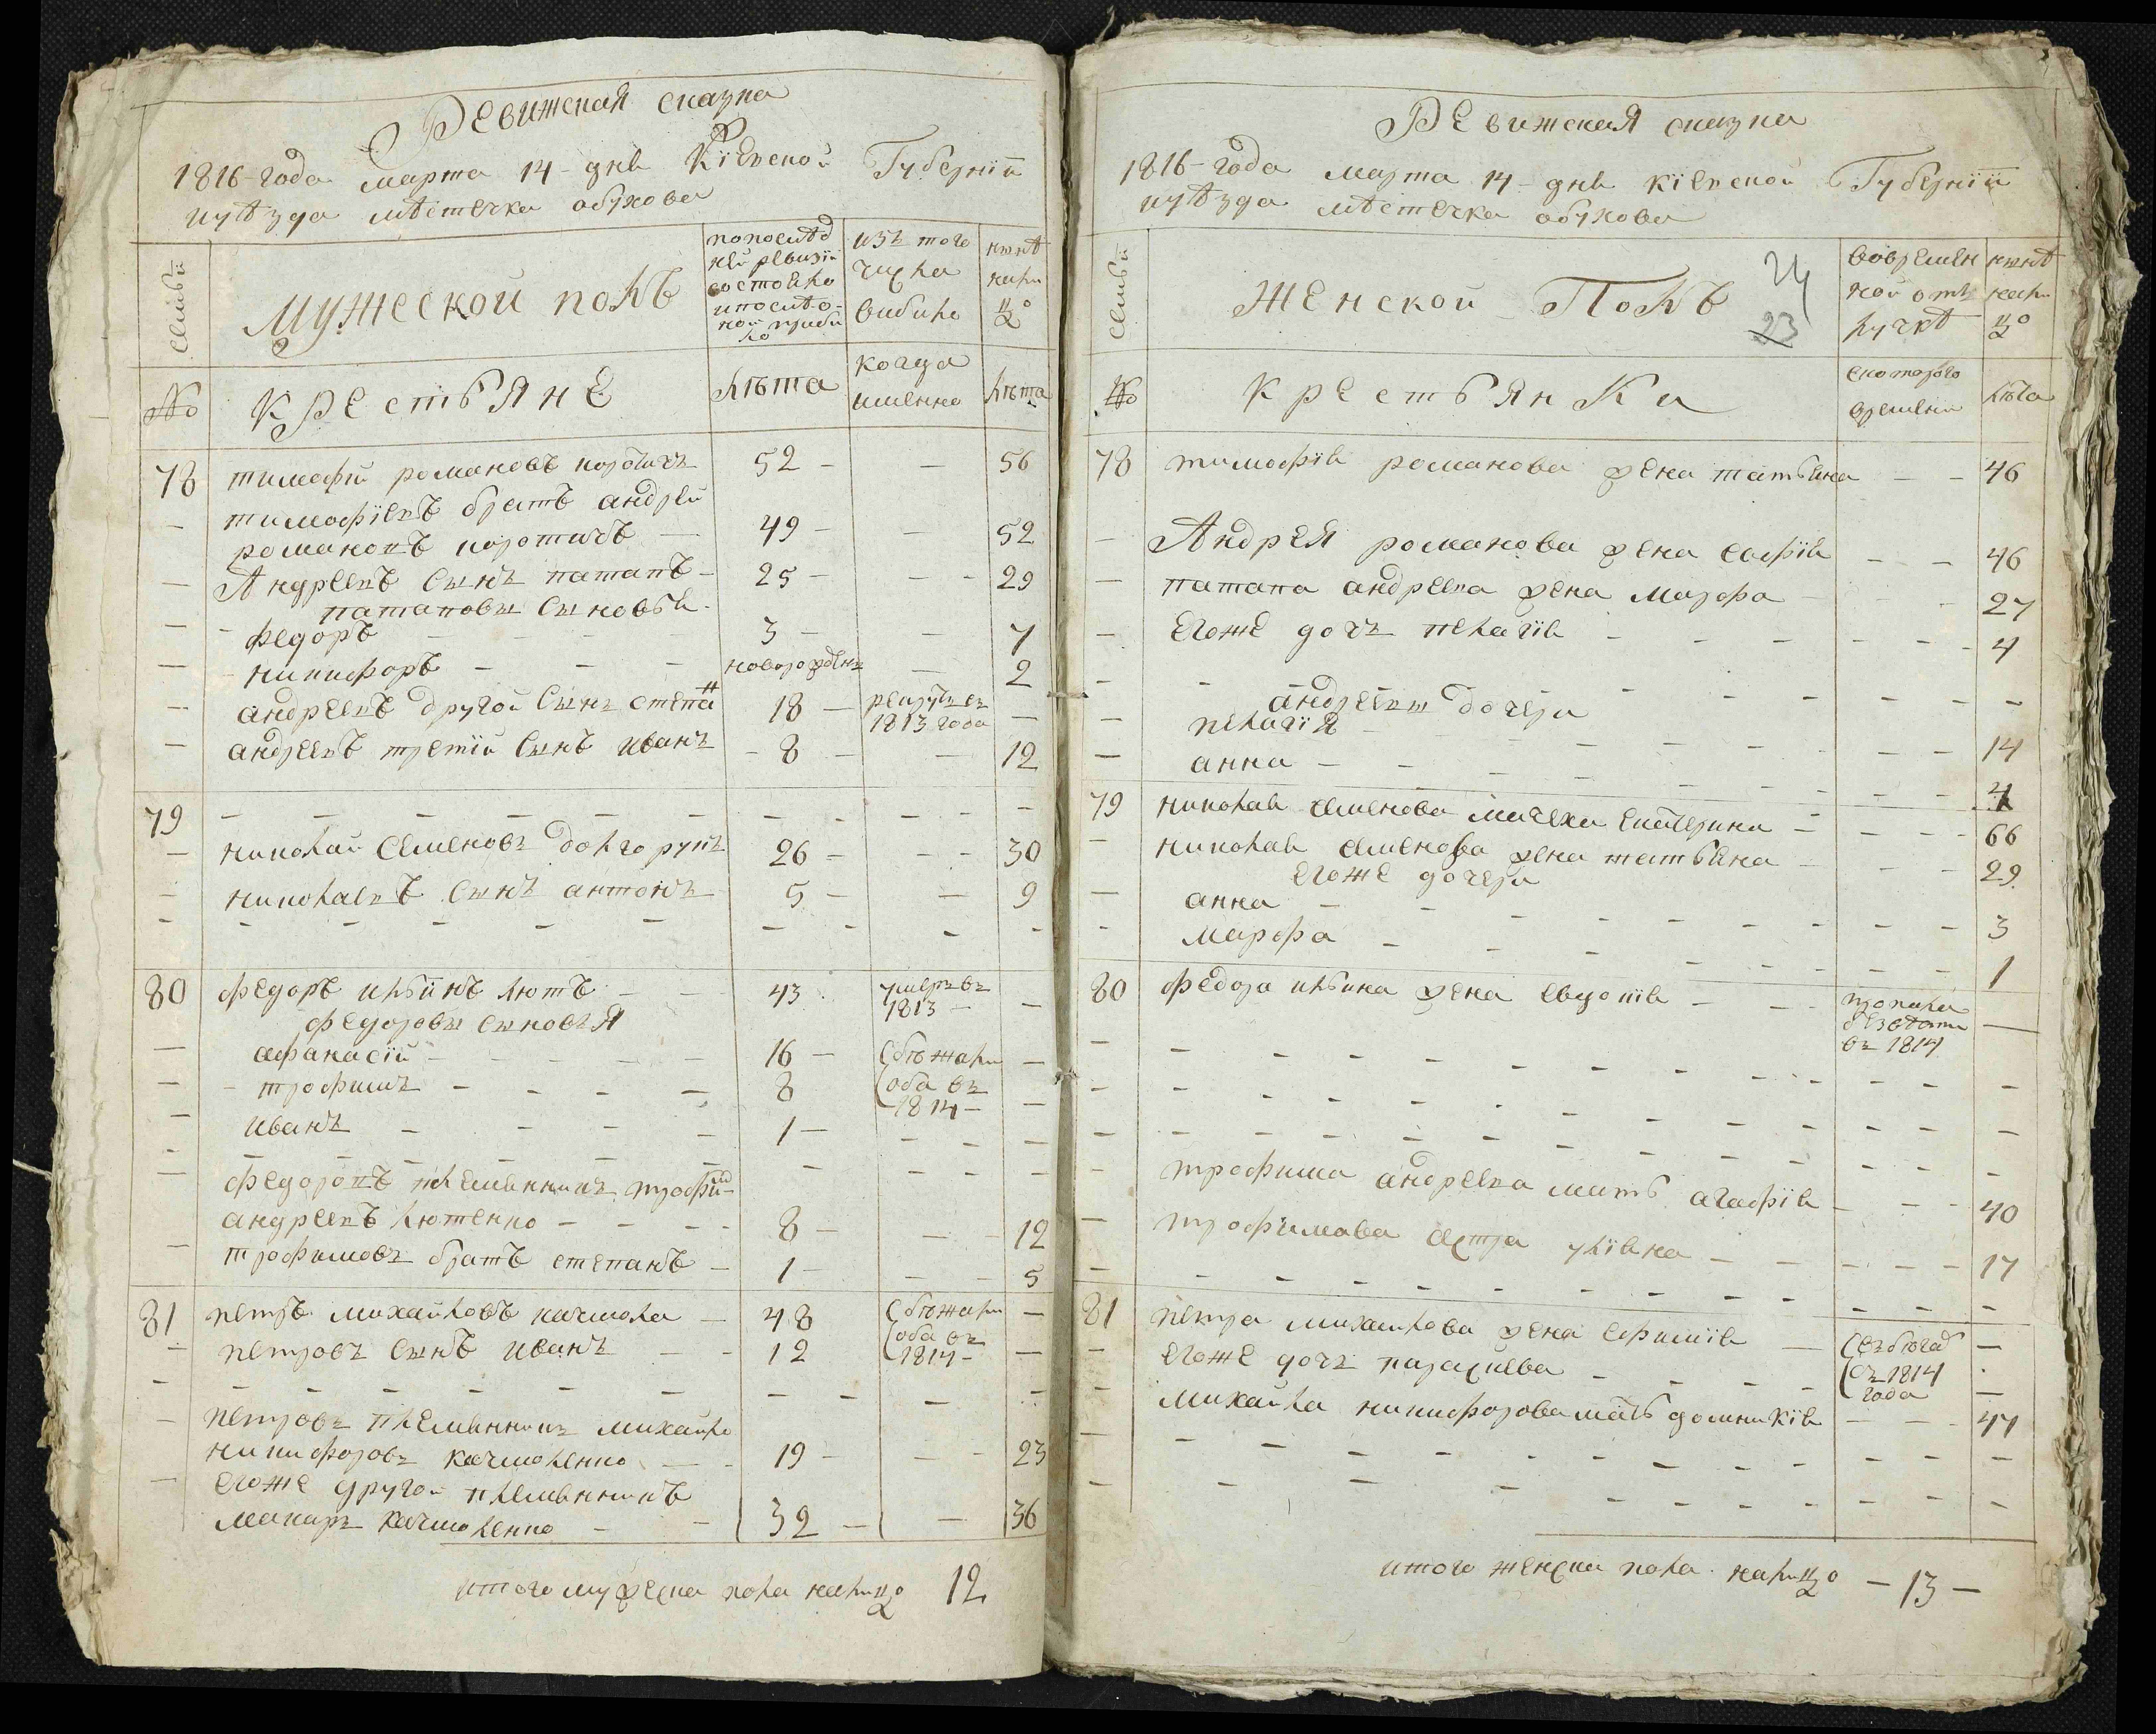 Ревижская сказка
1816-года марта 14-дня Кіевской Губерніи
и уѣзда мѣстечка обухова
семьи
мужеской полъ
по послѣд
ней ревизіи
состояло
и послѣ о-
ной прибы
ло
изъ того
числа
выбыло
нынѣ
нали
цо
№
крестьяне
лѣта
когда
именно
лѣта
78 тимофій романовъ коротичъ 52 - - 56
- тимофіевъ братъ андрей
романовъ коротичъ - 49 - - 52
- Андреевъ сынъ патапъ - 25 - - - 29
патаповы сыновья
- - федоръ - - - 3 - - 7
- - никифоръ - - - новорожденъ - 2
- андреевъ другой сынъ степа 18 - рекрутъ въ
1813 года -
- андреевъ третій сынъ иванъ - 8 - - 12
79 - - - - - - - - - - -
- николай семеновъ долгорукъ 26 - - - 30
- николаевъ сынъ антонъ 5 - - 9
- - - - - - - - - -
80 федоръ ильинъ лютъ - - 43 умеръ въ
1813 - -
федоровы сыновья
- афанасій - - - - 16 - сбѣжали -
- - трофимъ - - - - 8 оба въ
1814 - -
- иванъ - - - - 1 - - - - -
- - - - - - - - - - - -
- федоровъ племянникъ трофим
андреевъ лютенко - - - - 8 - - - 12
- трофимовъ братъ степанъ - 1 - - - 5
81 петръ михайловъ качмола - 48 сбѣжали -
- петровъ сынъ иванъ - - 12 оба въ
1814 - -
- - - - - - - - - - - -
- петровъ племянникъ михайло
никифоровъ качмоленко - - 19 - - - 23
- егоже другой племянникъ
макаръ качмоленко - - 32 - - 36
итого мужеска пола налицо 12
Ревижская сказка
1816-года марта 14-дня кіевской Губерніи
и уѣзда мѣстечка обухова
семьи
Женской Полъ
24
23
во времен
ной отъ
лучкѣ
нынѣ
нали
цо
№
крестьянки
с котораго
времени
лѣта
78 тимофія романова жена татьяна - - 46
- Андрея романова жена софія - - 46
- патапа андреева жена марфа - - - 27
- егоже дочъ пелагія - - - - - - 4
- - андреевы дочери - - - - - -
- пелагія - - - - - - - - - 14
- анна - - - - - - - - - 4
79 николая семенова мачеха екатерина - - - - 66
- николая семенова жена татьяна - - - 29
егоже дочери
- анна - - - - - - - - - 3
- марфа - - - - - - - - - 1
80 федора ильина жена евдокія - - - пропала
без вѣсти
въ 1814 -
- - - - - - - - - - - - - - -
- - - - - - - - - - - - - -
- - - - - - - - - - - - - - -
- трофима андреева мать агафія - - - 40
- трофимова сестра уліяна - - - - - - 17
- - - - - - - - - - - - -
81 петра михайлова жена ефимія - съ побѣга
съ 1814
года -
- егоже дочъ параскева - - - - -
- михайла никифорова мать домникія - - - 47
- - - - - - - - - - - - -
- - - - - - - - - - - -
итого женска пола налицо - 13 -